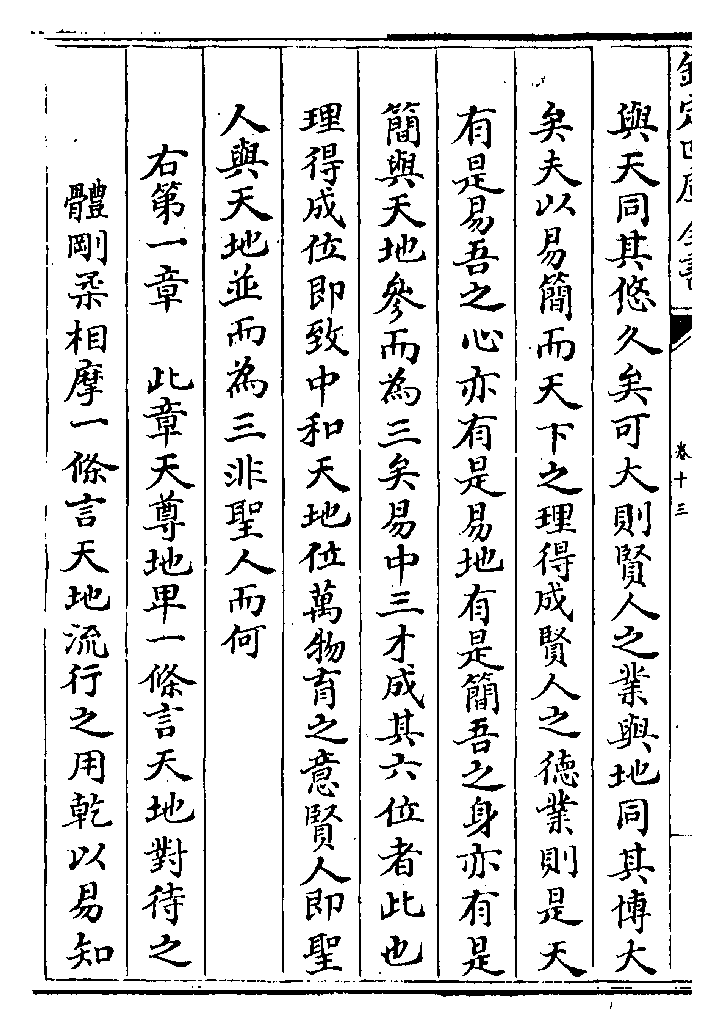 欽定四庫全書
卷十三
與天同其悠久矣可大則賢人之業與地同其博大
矣夫以易簡而天下之理得成賢人之德業則是天
有是易吾之心亦有是易地有是簡吾之身亦有是
簡與天地參而為三矣易中三才成其六位者此也
理得成位即致中和天地位萬物育之意賢人即聖
人與天地並而為三非聖人而何
右第一章　此章天尊地卑一條言天地對待之
體剛柔相摩一條言天地流行之用乾以易知